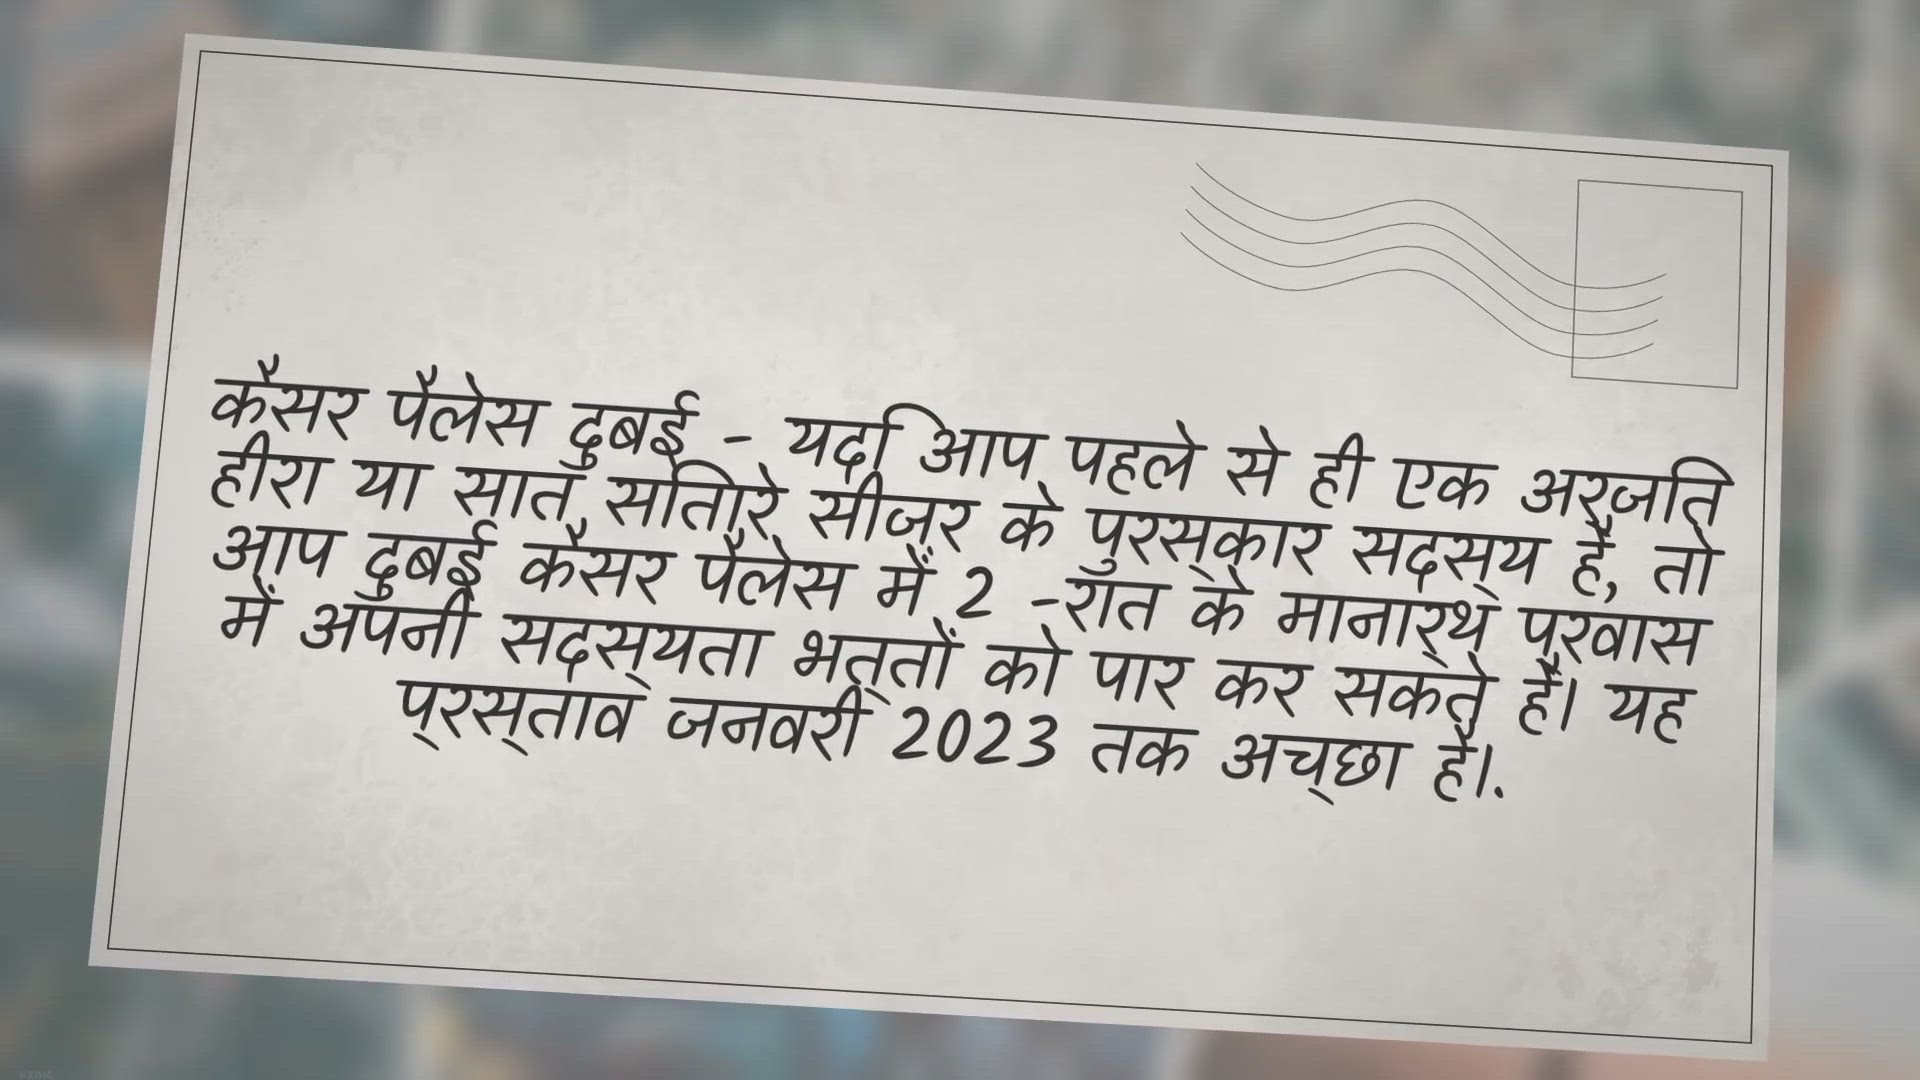 कैसर पैलेस दुबई - यदि आप पहले से ही एक अर्जित
हीरा या सात सितारे सीज़र के पुरस्कार सदस्य हैं, तो
आप दुबई कैसर पैलेस में 2 -रात के मानार्थ प्रवास
में अपनी सदस्यता भत्तों को पार कर सकते हैं। यह
प्रस्ताव जनवरी 2023 तक अच्छा है।.